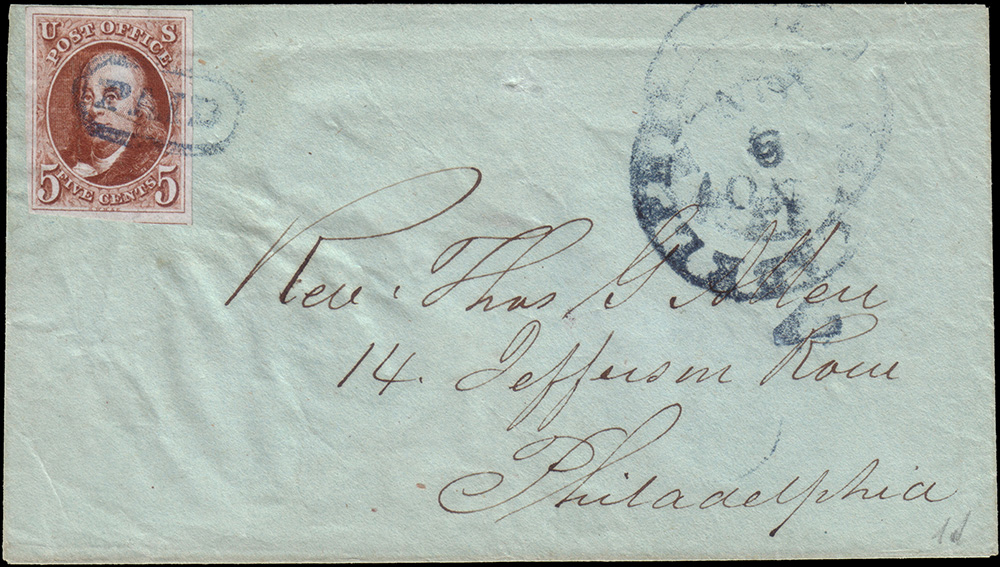 U S
POST OFFICE
PAID
5 FIVE CENTS 5
6
NOV
Rev. Thos G Allen
14. Jefferson Row
Philadelphia
1d